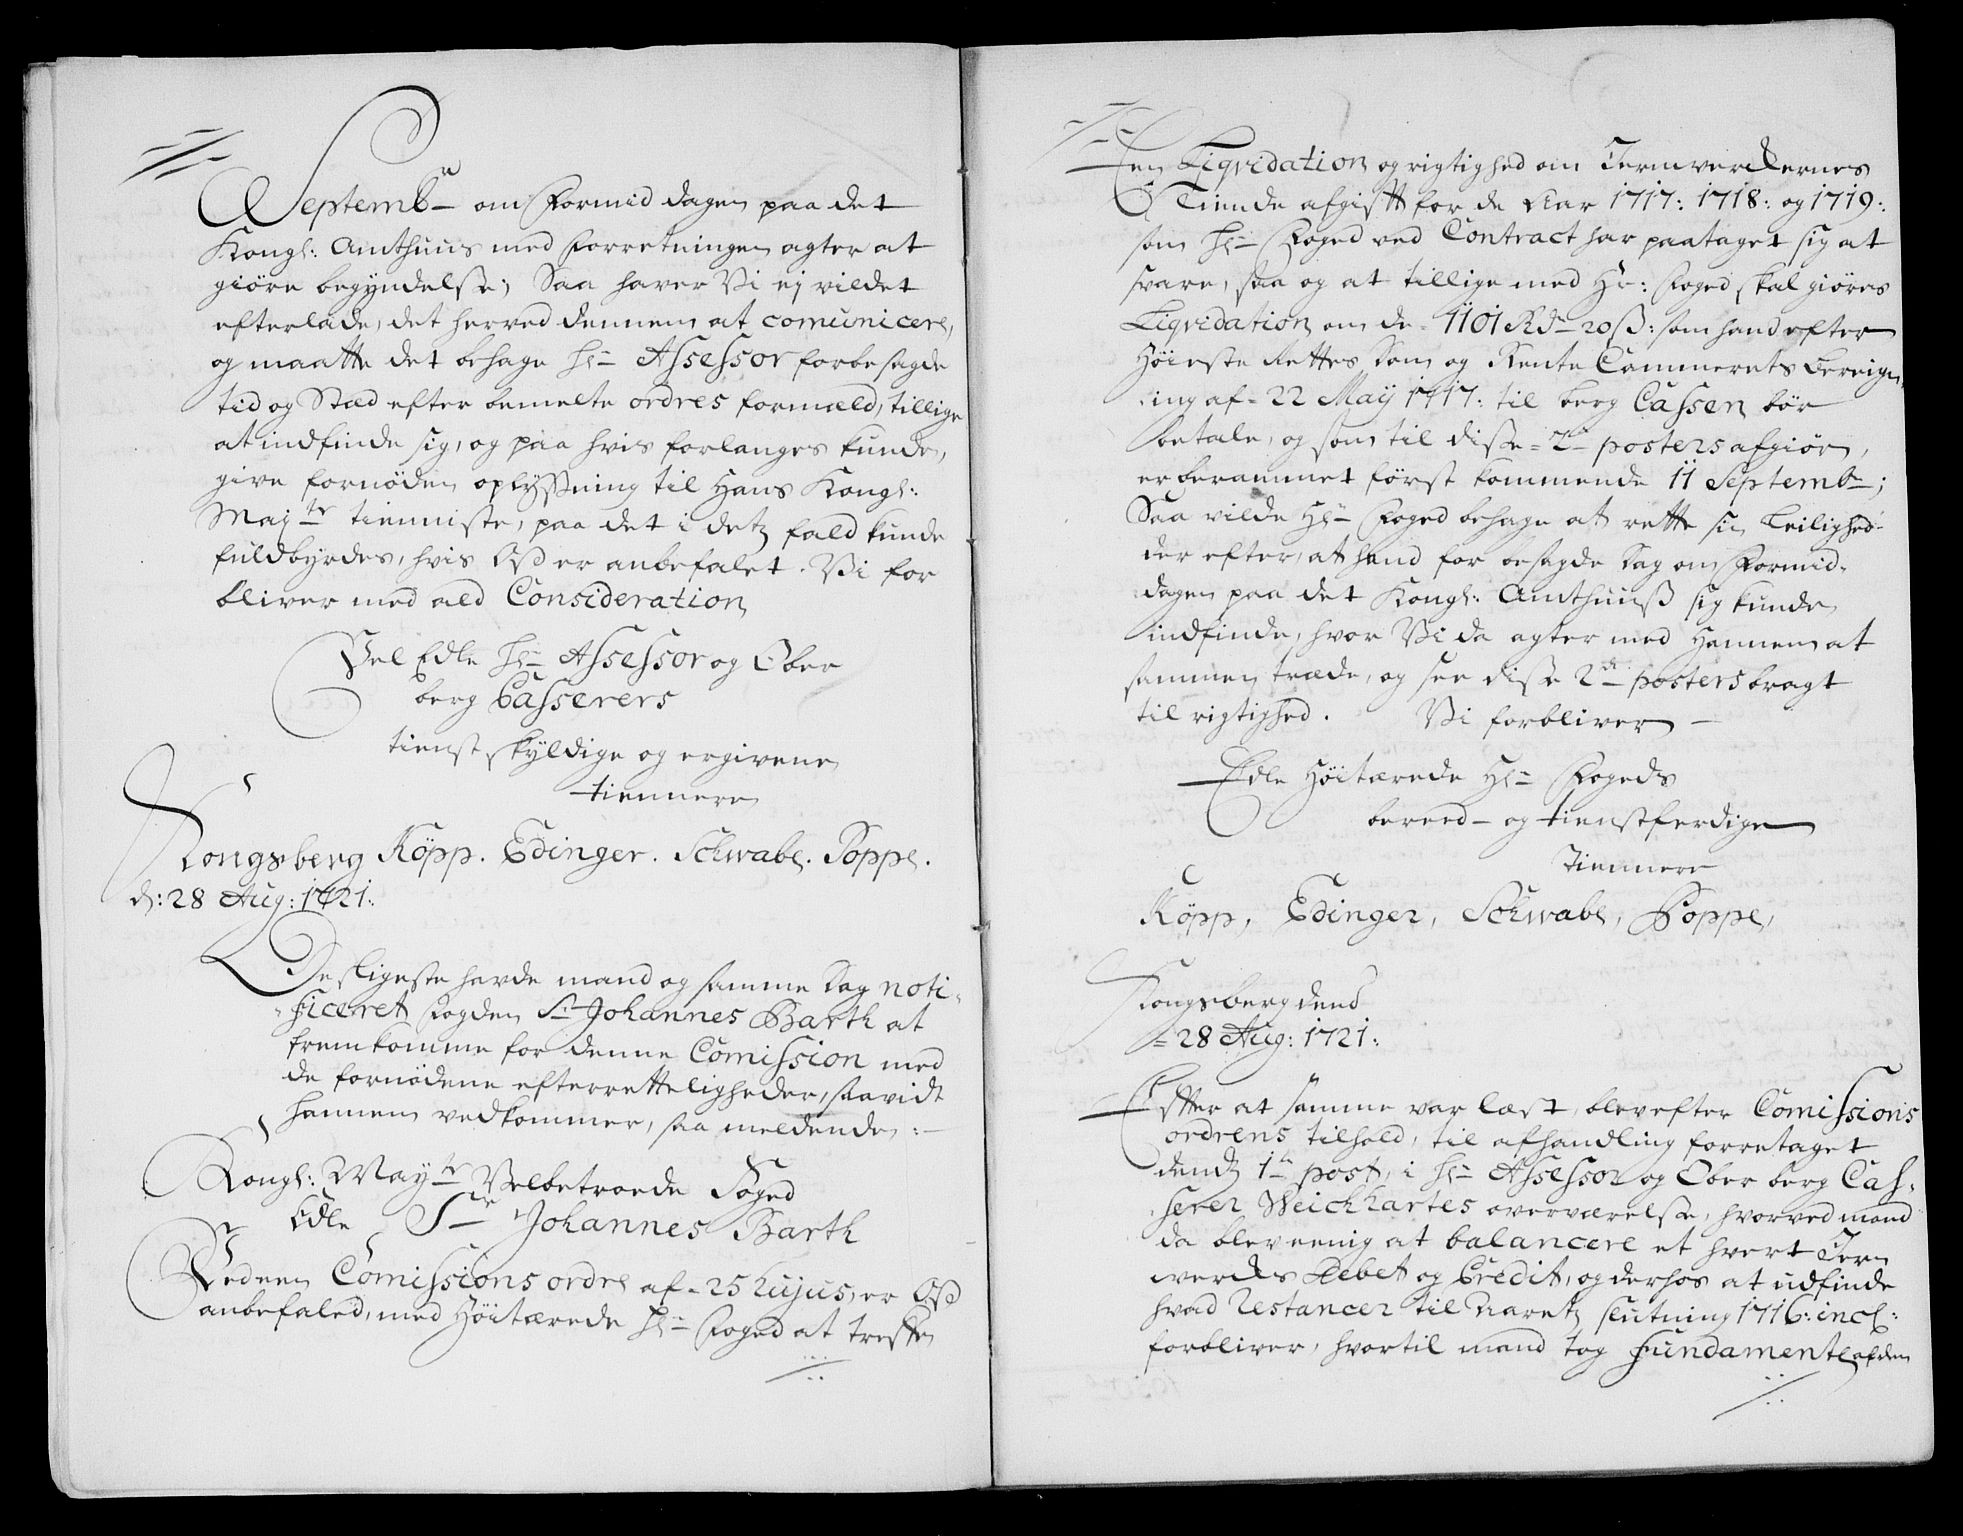 Septembr om Formiddagen paa det
Kongl: Amthuus med Forretningen agter at
giöre begyndelse; Saa haver Vi ej vildet
efterlade, det herved dennem at comunicere,
og maatte det behage Hr Assessor forbesagde
tid og Stæd efter bemelte ordres formæld, tillige
at indfinde sig, og paa hvis forlanges kunde,
give fornöden oplyssning til Hans Kongl:
Majts tienniste, paa det i detz fald kunde
fuldbyrdes, hvis Oss er anbefalet. Vi for
bliver med ald Consideration
Vel Edle Hr Assessor og Ober
berg Casserers
tienstskyldige og ergivene
tiennere
Kongsberg Köpp. Edinger. Schwabe. Poppe.
d: 28 Aug: 1721:
Desligeste havde mand og samme dag noti-
ficeret Fogden Sr Johannes Barth at
fremkomme for denne Comission med
de fornödene efterretteligheder, saavidt
hannem vedkommer, saa meldende:
Kongl: Mayts Velbetroede Foged
Edle Sr Johannes Barth
Ved een Comissions ordre af 25 hujus, er Oss
anbefaled, med Höitærede Hr Foged at treffe
En Liqvidation og rigtighed om Jernverckernes
Tiende afgift for de Aar 1717: 1718: og 1719:
som Hr Foged ved Contract har paataget sig at
svare, saa og at tillige med Hr: Foged skal giöres
Liqvidation om de 1101 Rdr 20 ß: som hand efter
Höieste Rettes dom og Rente Cammerets
ing af 22 May 1717: til berg Cassen bör
betale, og som til disse 2de posters afgiör,
er berammet först kommende 11 Septembr;
Saa vilde Hr Foged behage at rette sin Leilighed
der efter, at hand for besagde dag om Formid-
dagen paa det Kongl: Amthuuß sig kunde
indfinde, hvor Vi da agter med Hannem at
sammen træde, og see disse 2de posters bragt
til rigtighed. Vi forbliver
Edle Höitærede Hr Fogeds
bereed- og tienstferdige
Tiennere
Köpp, Edinger, Schwabe, Poppe,
Kongsberg dend
28 Aug: 1721:
Efter at samme var læst, blev efter Comissions
ordrens tilhold, til afhandling forretaget
dend 1te post, i Hr Assessor og Ober berg Cas-
serer Weichhartes overværelse, hvorved mand
da blev eenig at balancere et hvert Jern
wercks Debet og Credit, og derhos at udfinde
hvad Restancer til Aaretz slutning 1716: incl:
forbliver, hvortil mand tog Fundamente af den